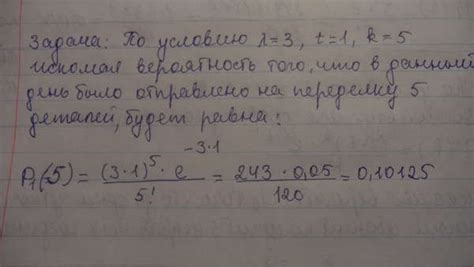 Задача: По условию λ=3, t=1, k=5
искомая вероятность того, что в данный
день было отправлено на переделку 5
деталей, будет равна:
P₁(5) = (3·1)⁵ · e⁻³·¹ / 5! = 243 · 0,05 / 120 = 0,10125